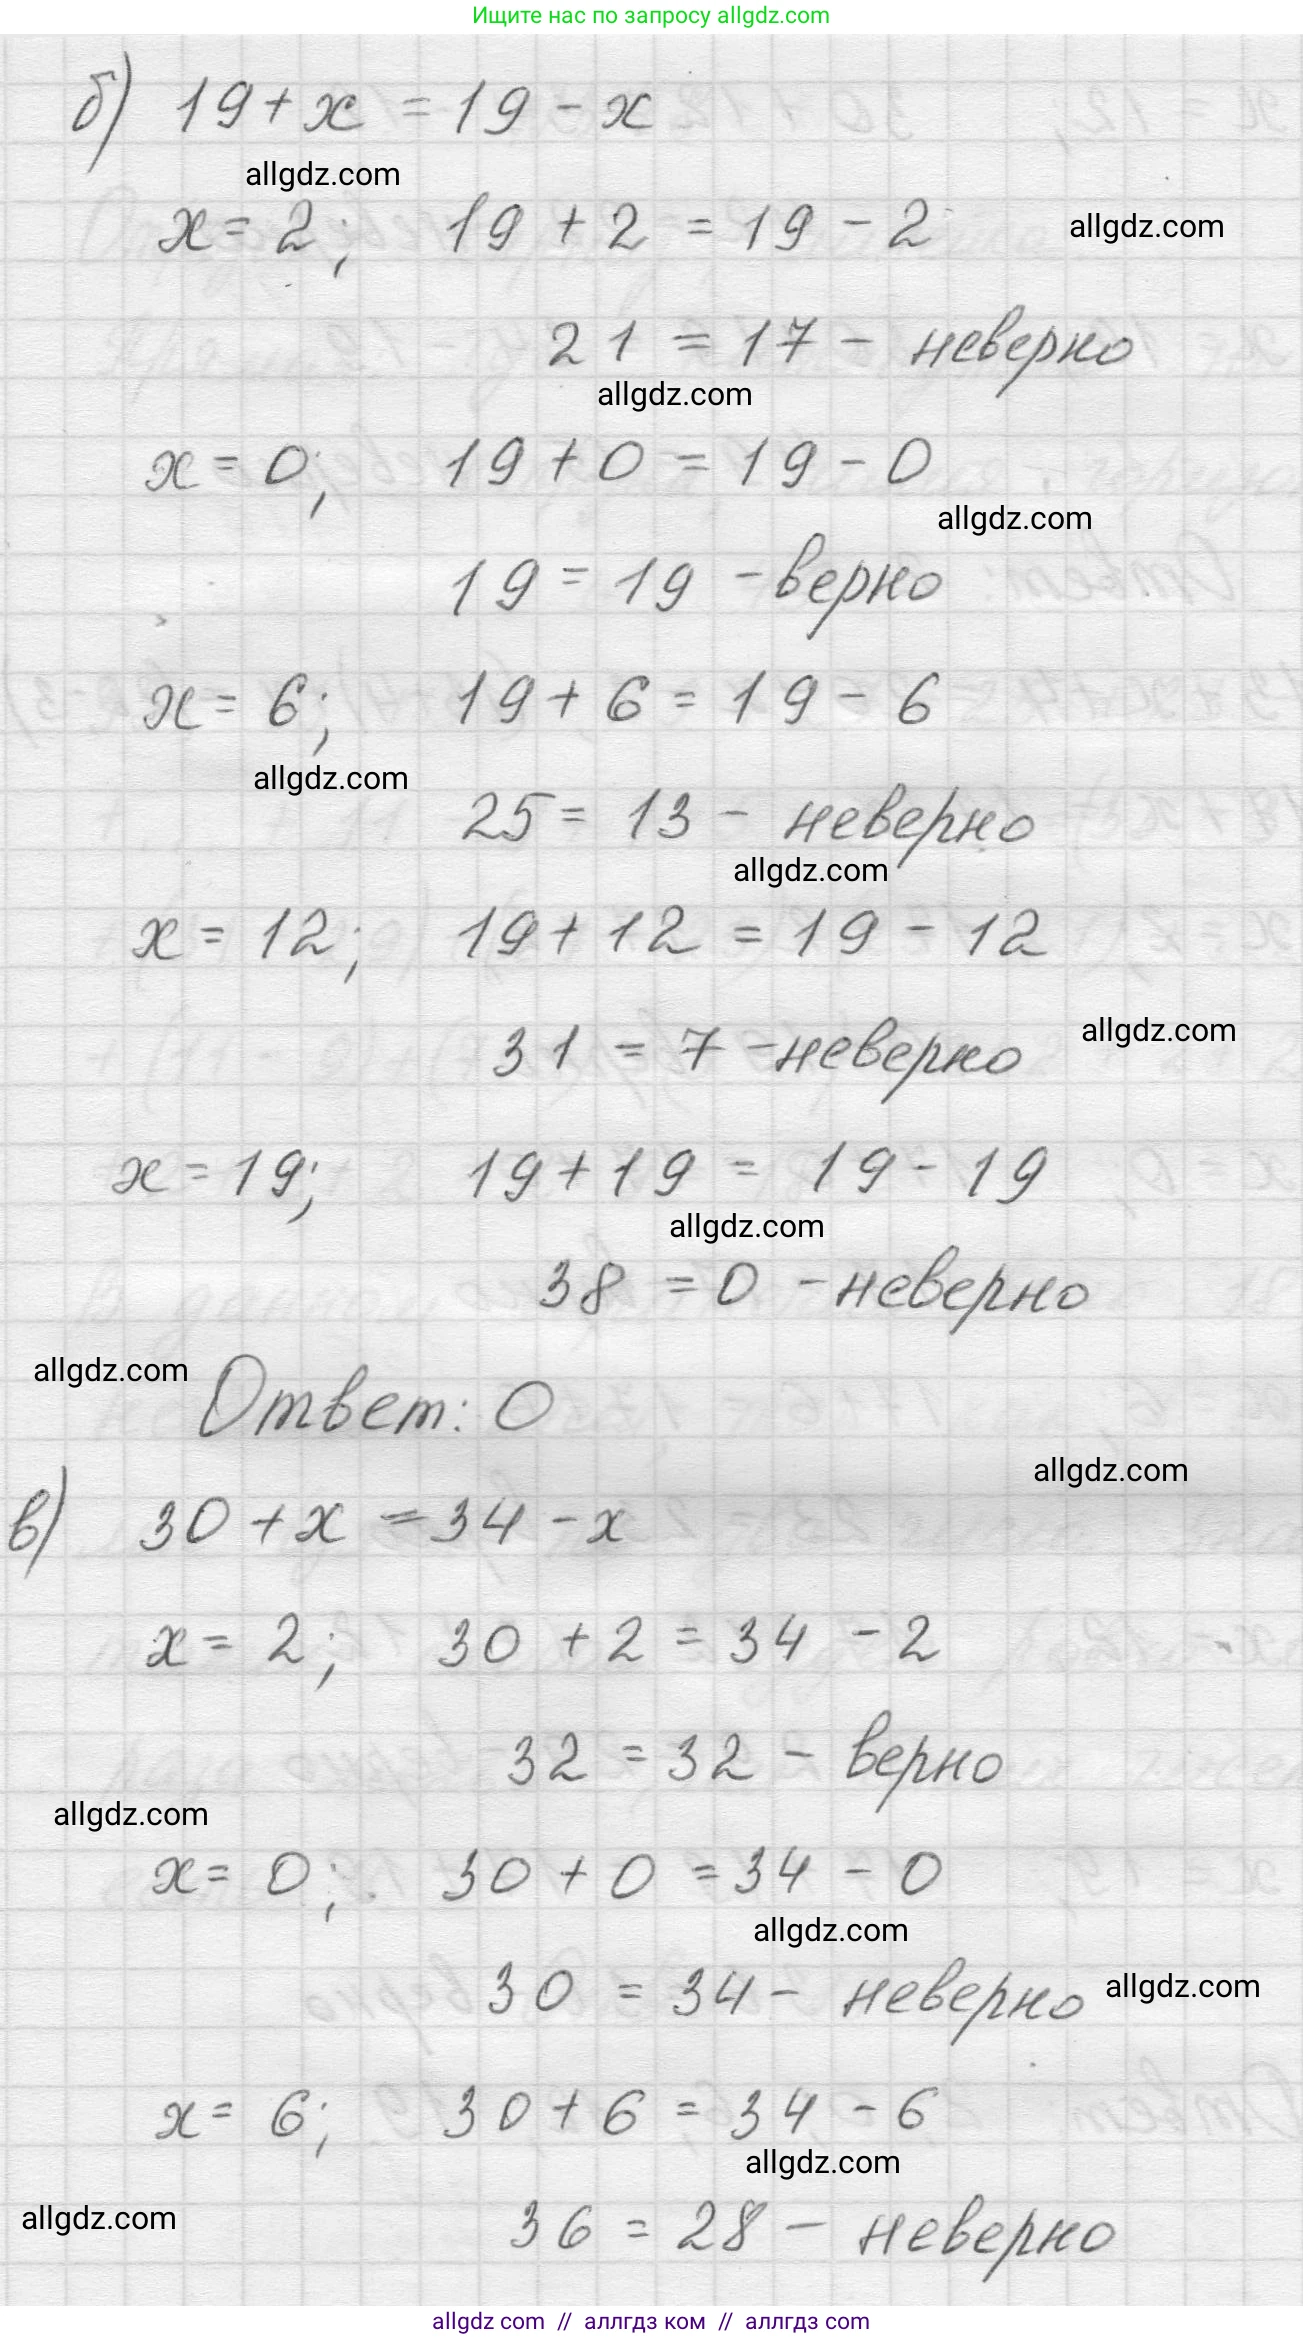 Ищите нас по запросу allgdz.com
б) 19 + x = 19 - x
allgdz.com
x = 2; 19 + 2 = 19 - 2
allgdz.com
21 = 17 - неверно
allgdz.com
x = 0; 19 + 0 = 19 - 0
allgdz.com
19 = 19 - верно
x = 6; 19 + 6 = 19 - 6
allgdz.com
25 = 13 - неверно
allgdz.com
x = 12; 19 + 12 = 19 - 12
allgdz.com
31 = 7 - неверно
x = 19; 19 + 19 = 19 - 19
allgdz.com
38 = 0 - неверно
allgdz.com
Ответ: 0
allgdz.com
в) 30 + x = 34 - x
x = 2; 30 + 2 = 34 - 2
32 = 32 - верно
allgdz.com
x = 0; 30 + 0 = 34 - 0
allgdz.com
30 = 34 - неверно
allgdz.com
x = 6; 30 + 6 = 34 - 6
allgdz.com
36 = 28 - неверно
allgdz.com
allgdz com // аллгдз ком // аллгдз com